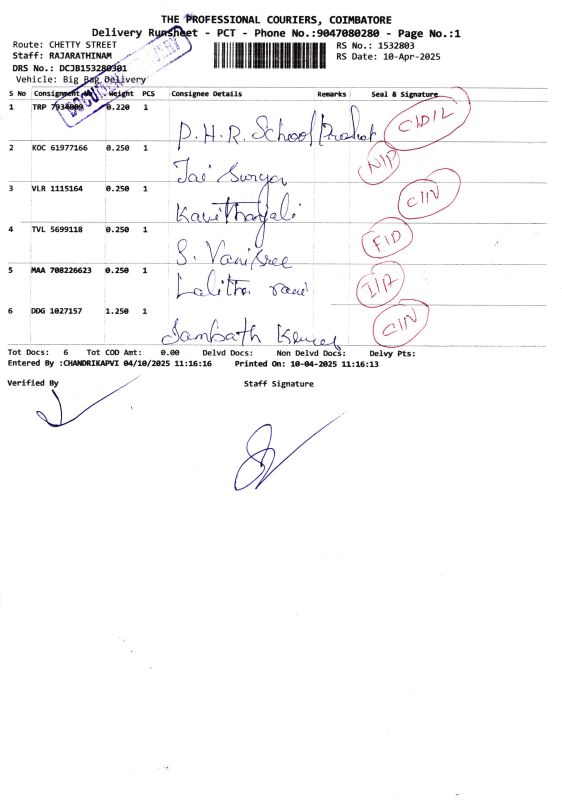 THE PROFESSIONAL COURIERS, COIMBATORE
Delivery Runsheet - PCT - Phone No.:9047080280 - Page No.:1
Route: CHETTY STREET
RS No.: 1532803
Staff: RAJARATHINAM
RS Date: 10-Apr-2025
DRS No.: DCJB153280301
Vehicle: Big Bag Delivery
S No Consignment No Weight PCS Consignee Details Remarks Seal & Signature
1 TRP 7934009 0.220 1
P.H.R. School
2 KOC 61977166 0.250 1
Jai Surya
3 VLR 1115164 0.250 1
4 TVL 5699118 0.250 1
S. Vanisree
5 MAA 708226623 0.250 1
Lalitha rani
6 DDG 1027157 1.250 1
Sambath Kumar
Tot Docs: 6 Tot COD Amt: 0.00 Delvd Docs: Non Delvd Docs: Delvy Pts:
Entered By :CHANDRIKAPVI 04/10/2025 11:16:16 Printed On: 10-04-2025 11:16:13
Verified By Staff Signature